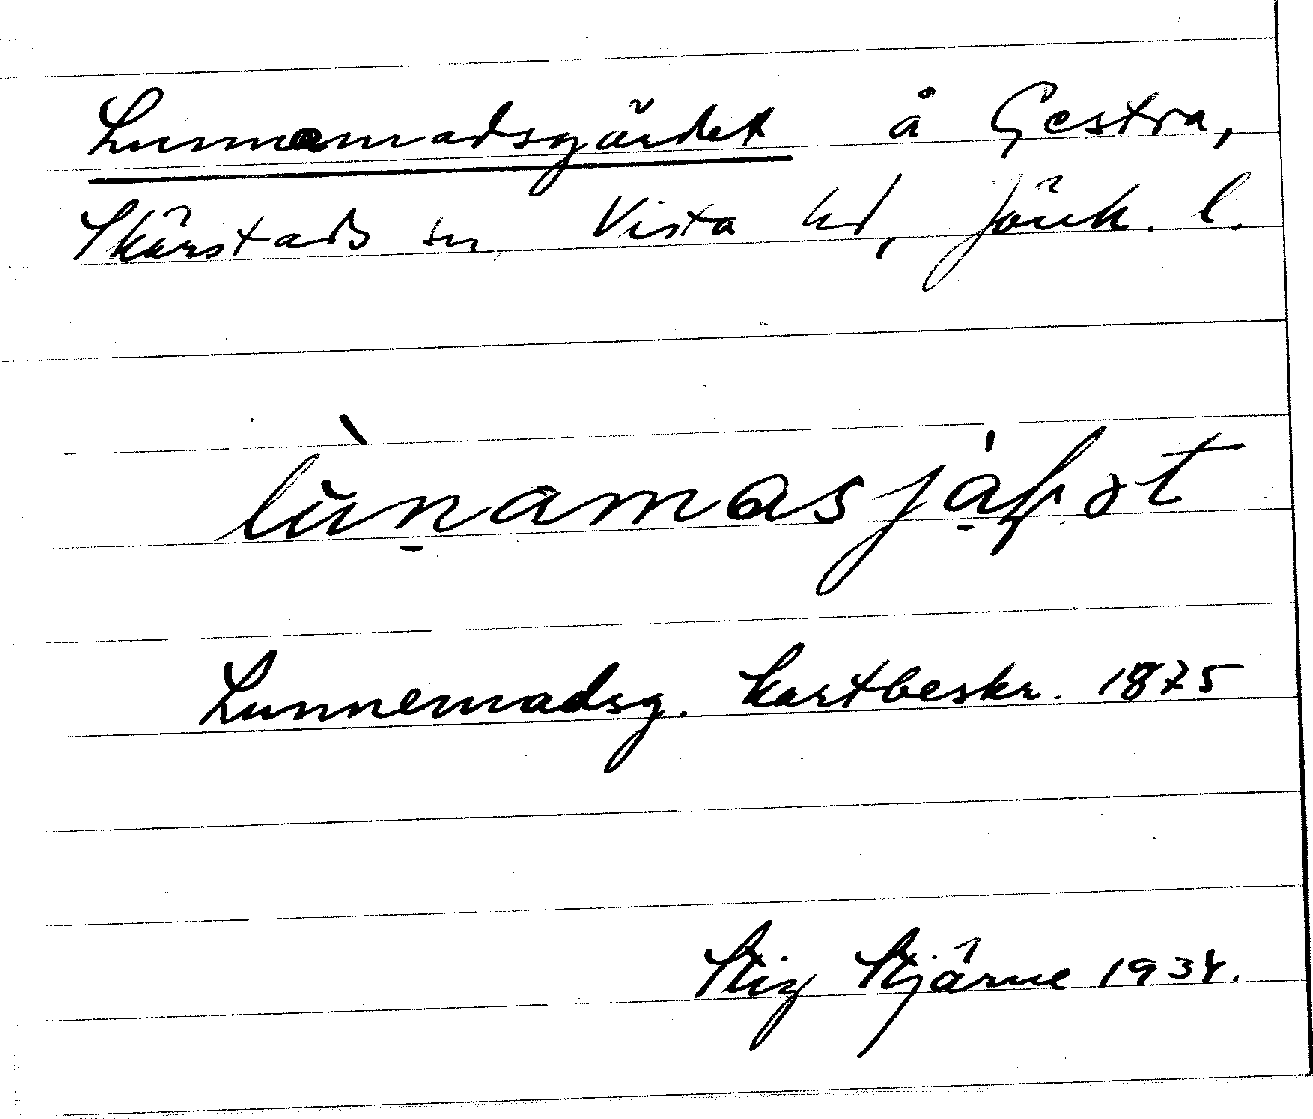 Lunnamadsgärdet å Gestra,
Skärstads sn, Vista hd, Jönk. l.
lùnamasjaʃɔt
Lunnemadsg. Kartbeskr. 1875
Stig Stjärne 1934.